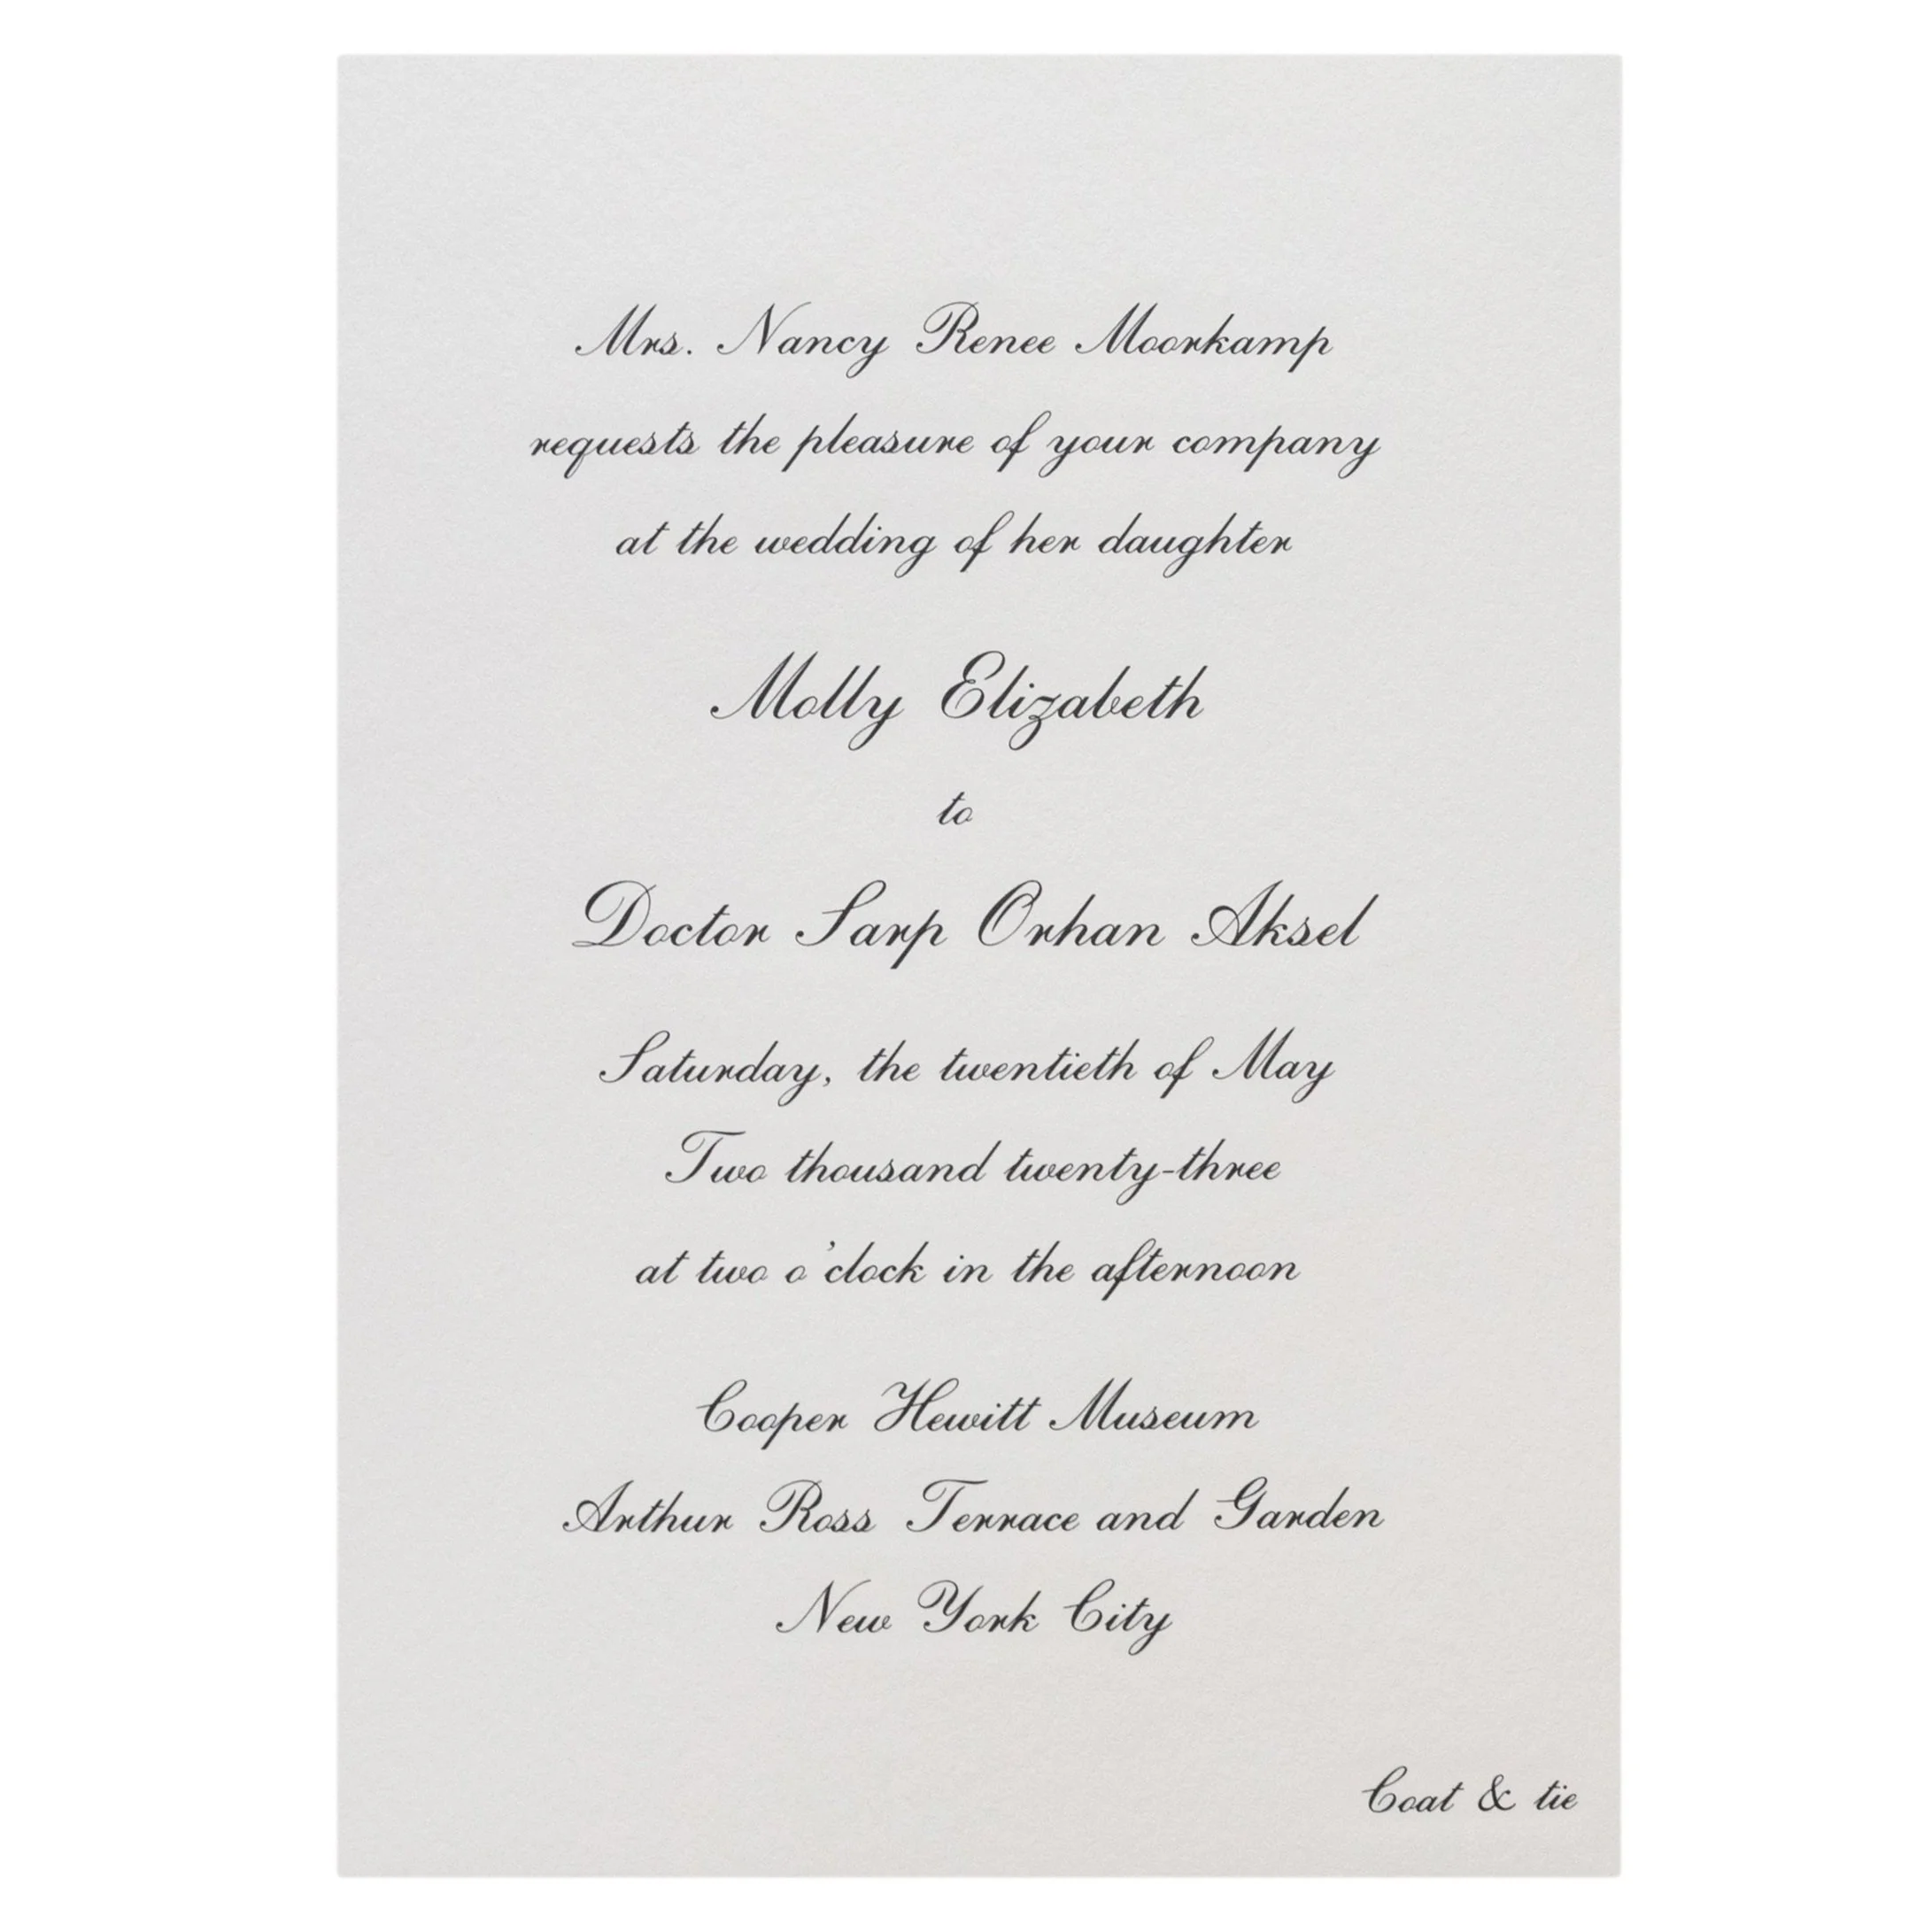 Mrs. Nancy Renee Moorkamp
requests the pleasure of your company
at the wedding of her daughter
Molly Elizabeth
to
Doctor Sarp Orhan Aksel
Saturday, the twentieth of May
Two thousand twenty-three
at two o'clock in the afternoon
Cooper Hewitt Museum
Arthur Ross Terrace and Garden
New York City
Coat & tie